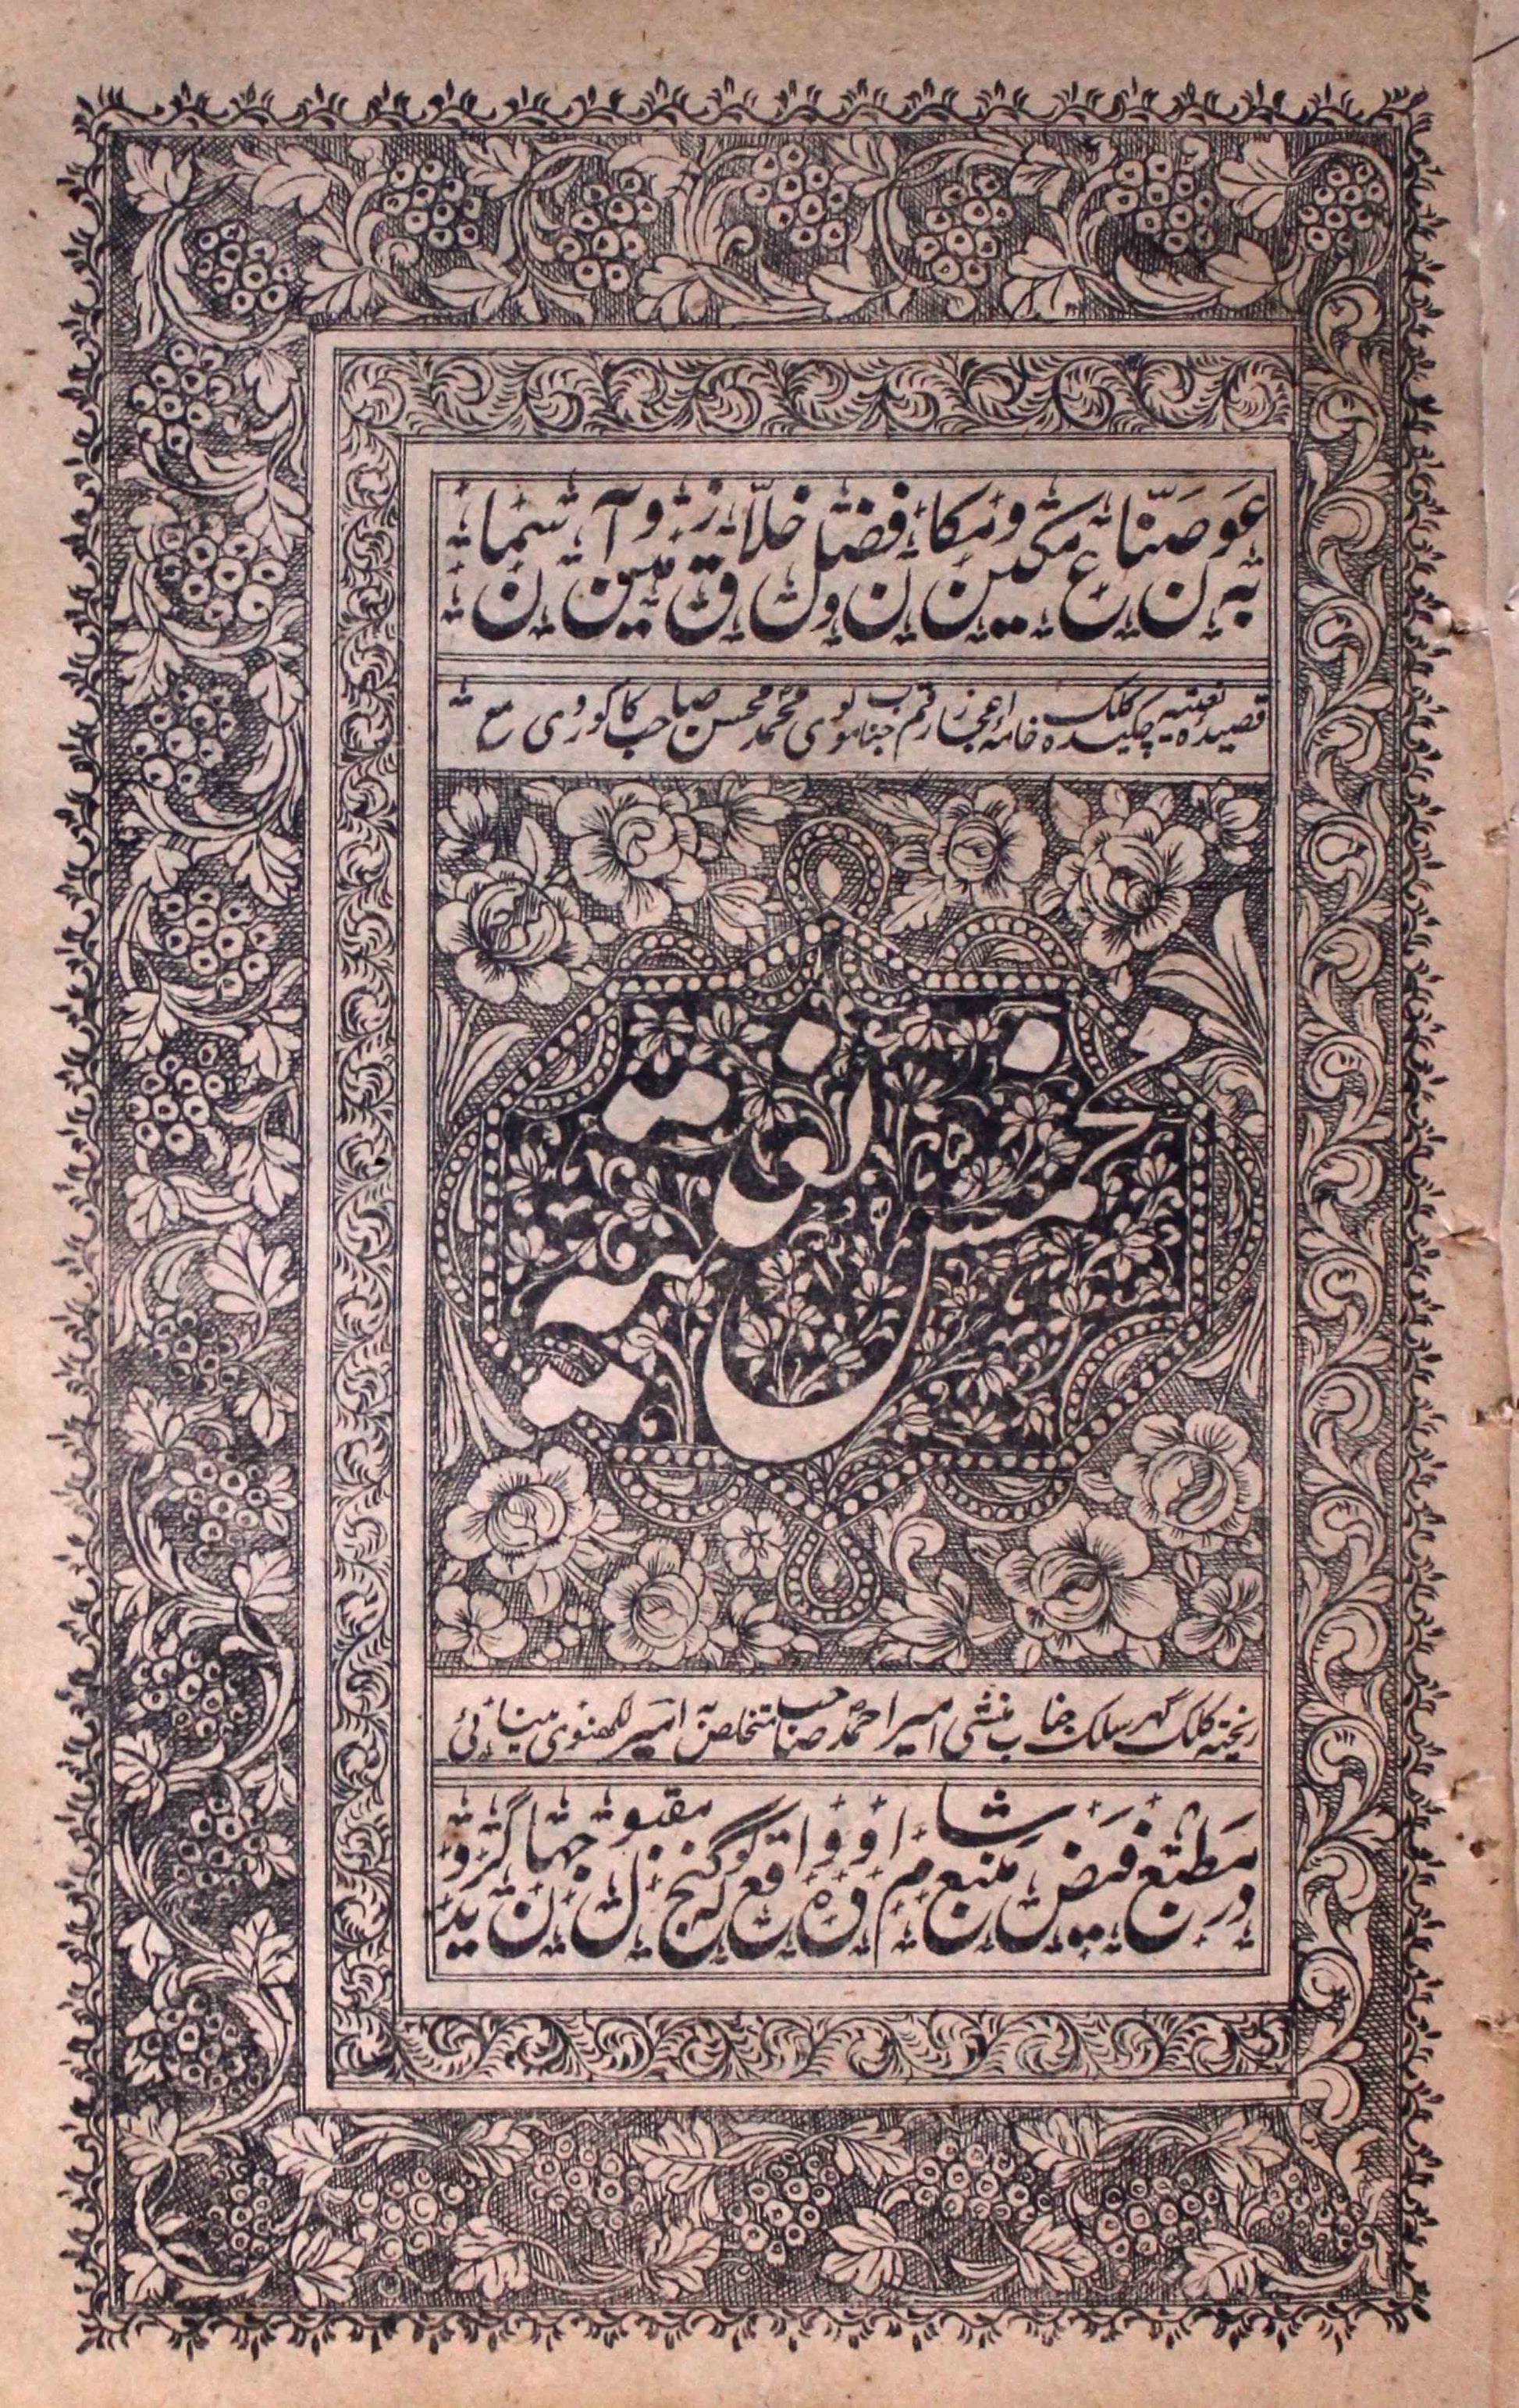 بعون صنّاع مکین و مکان و فضل خلّاق زمین و آسمان
قصیدہ نعتیہ چکیدہ کلک خامہ اعجاز رقم جناب مولوی محمد محسن صاحب کاکوروی مع
مخمس نعتیہ
ریختہ کلک گہر سلک جناب منشی امیر احمد صاحب متخلص بہ امیر لکھنوی مینائی
در مطبع فیض منبع شام اودہ واقع گولہ گنج مقبول جہان گردید